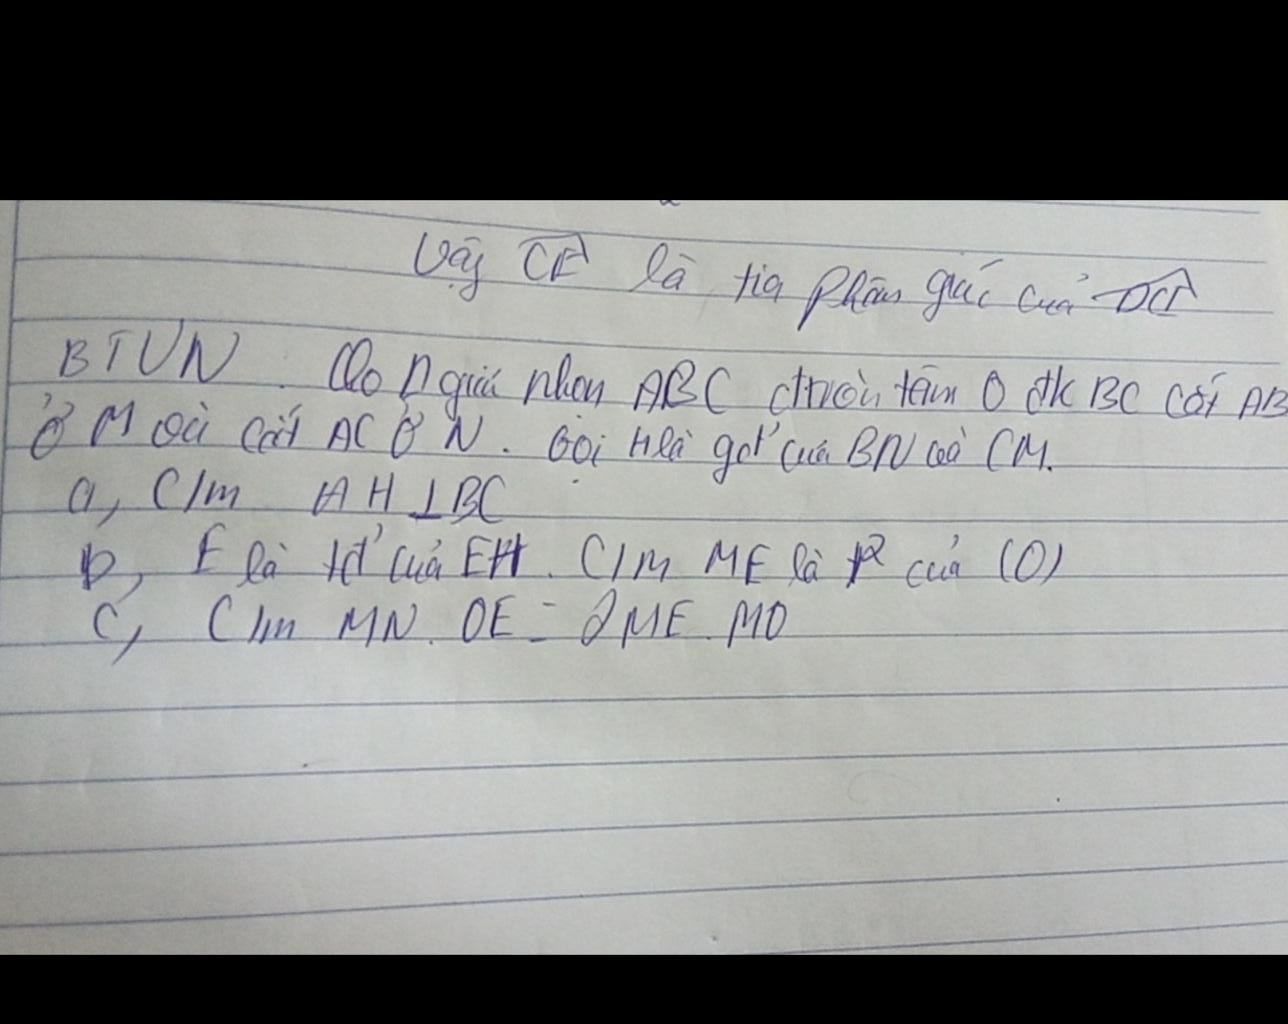 Vậy CE là tia phân giác của DCF
BTVN. Cho ∆ giác nhọn ABC đtròn tâm O đk BC cắt AB
ở M và cắt AC ở N. Gọi H là gđ của BN và CM.
a, C/m AH⊥BC
b, E là tđ của EH. C/M ME là của (O)
c, C/m MN. OE = 2ME. MO